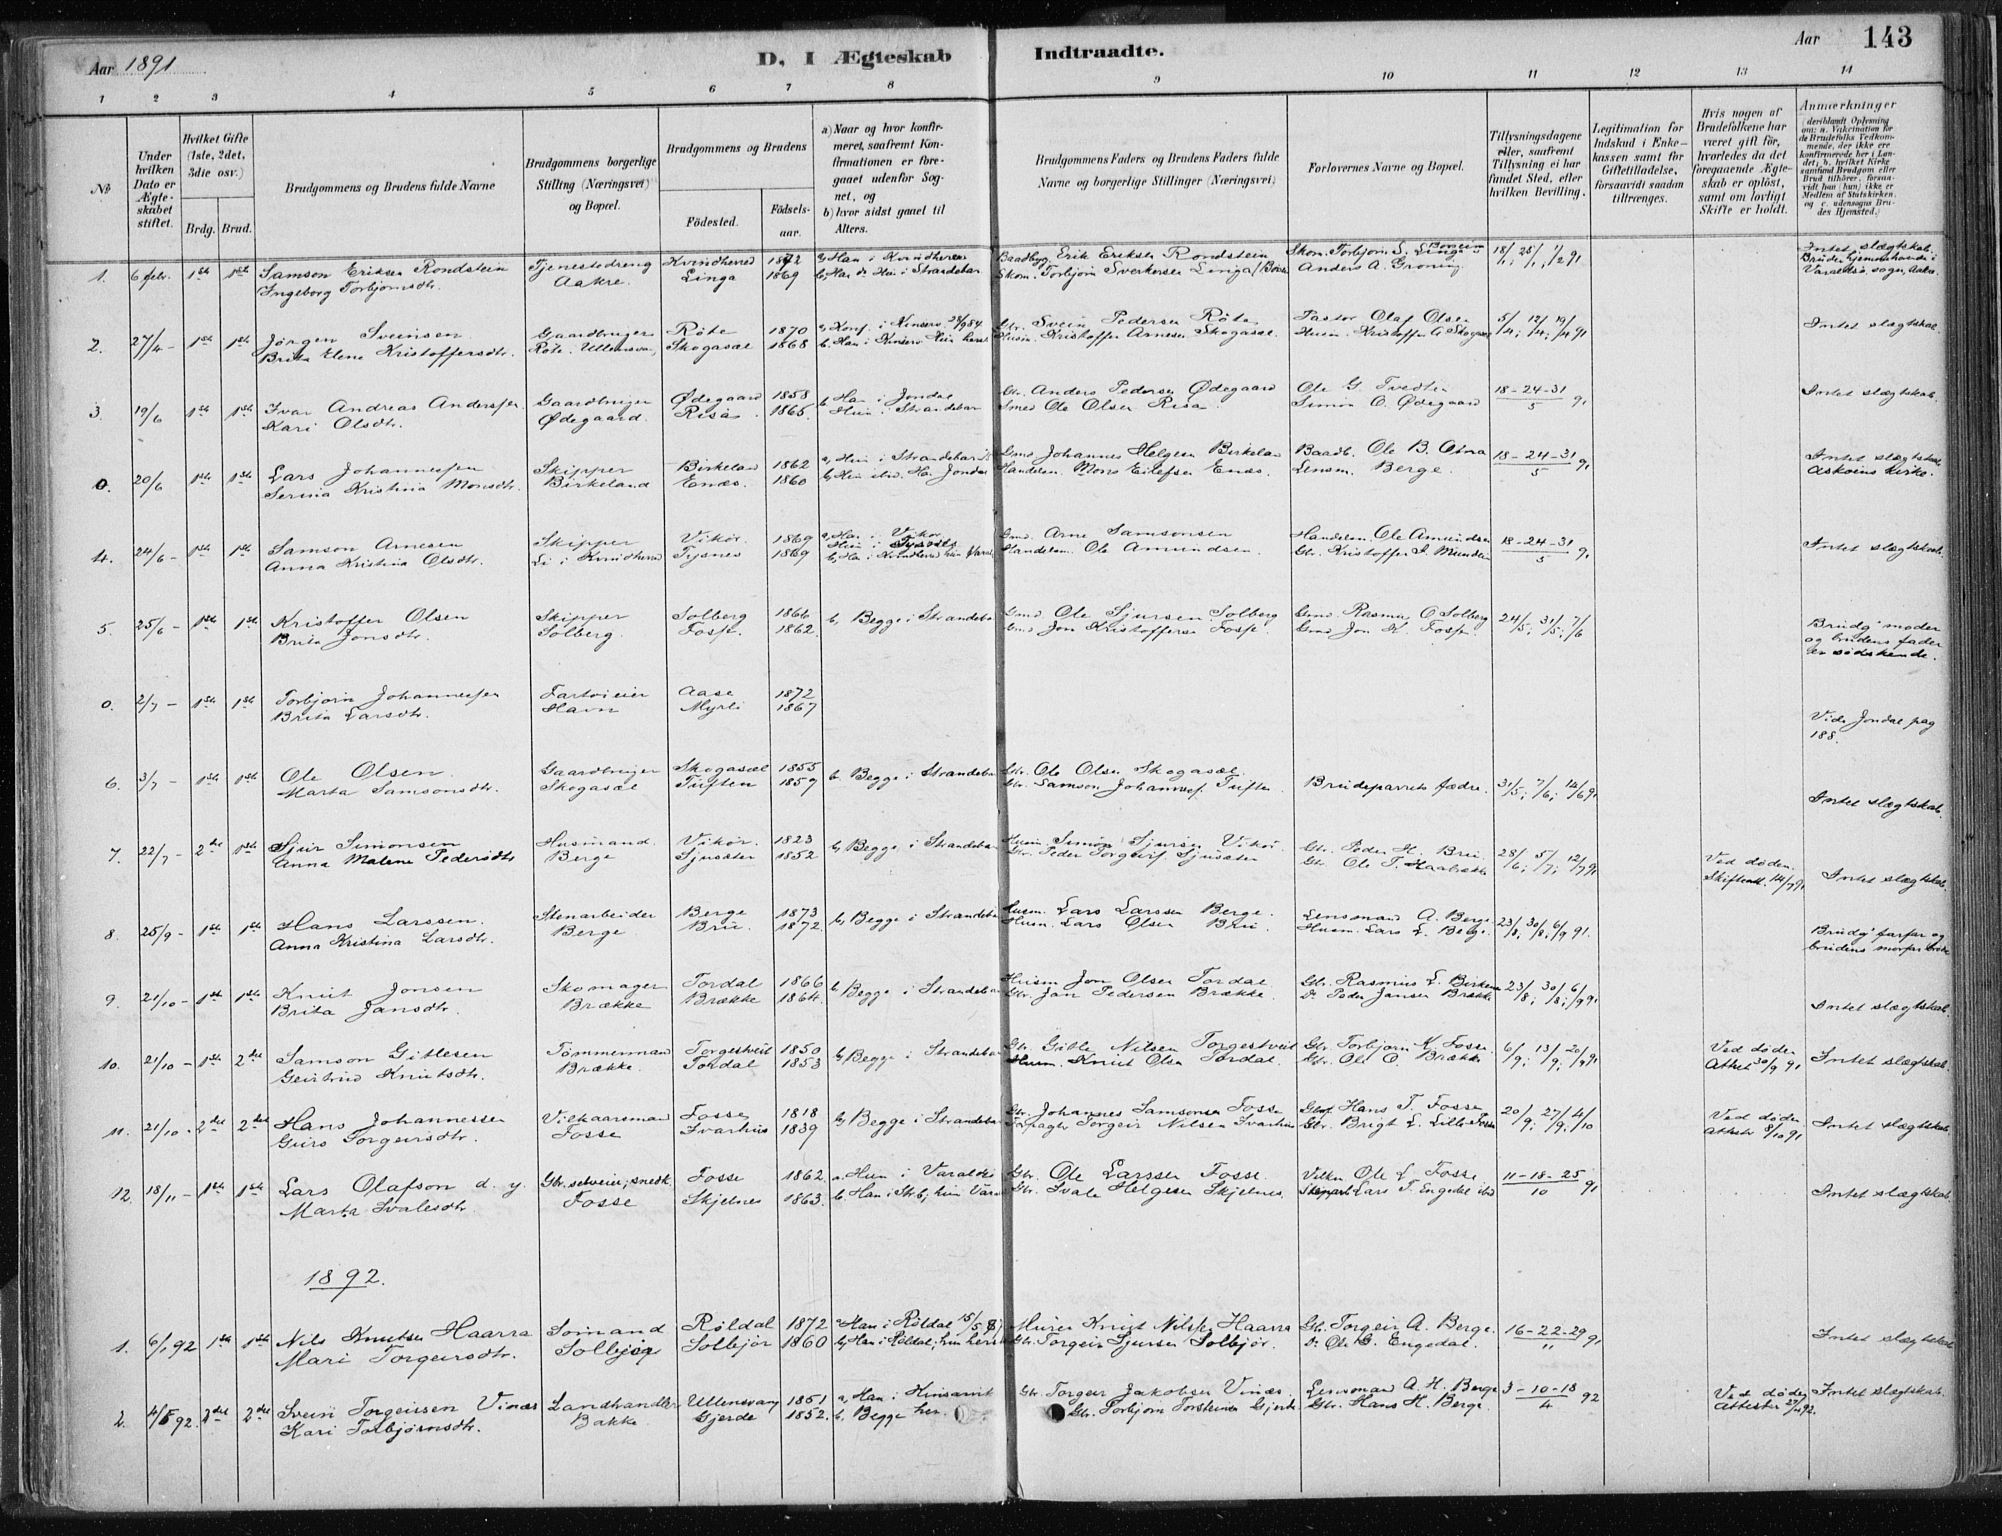 Aar 1891
D. I Ægteskab Indtraadte.
Aar 143
1 2 3 4 5 6 7 8 9 10 11 12 13 14
No
Under hvilken Dato er Ægte-skabet stiftet.
Hvilket Gifte (1ste, 2det, 3die osv.)
Brdg. Brud.
Brudgommens og Brudens fulde Navne
Brudgommens borgerlige Stilling (Næringsvei) og Bopæl.
Brudgommens og Brudens
Födested.
Födsels-aar.
a) Naar og hvor konfir-meret, saafremt Kon-firmationen er fore-gaaet udenfor Sog-net, og
b) hvor sidst gaaet til Alters.
Brudgommens Faders og Brudens Faders fulde Navne og borgerlige Stillinger (Næringsvei)
Forlovernes Navne og Bopæl.
Tillysningsdagene eller, saafremt Tillysning ei har fundet Sted, efter hvilken Bevilling.
Legitimation for Indskud i Enke-kassen samt for Giftetilladelse, forsaavidt saadan tiltrænges.
Hvis nogen af Brudefolkene har været gift før, hvorledes da det foregaaende Ægte-skab er oplöst, samt om lovligt Skifte er holdt.
Anmærkninger (deriblandt Oplysning om: a. Vakcination for de Brudefolks Vedkom-mende, der ikke ere konfirmerede her i Lan-det; b. hvilket Kirke-samfund Brudgom eller Brud tilhörer, forsaa-vidt han (hun) ikke er Medlem af Statskirken, og c. udensogns Bru-des Hjemsted.)
1. 6 febr. 1ste 1ste Samson Eriksen Rondstein Tjenestedreng Kvindherred 1872 a, Han i Kvindherred Baadbyg. Erik Eriksen Rondstein Skom. Torbjørn S. Linga 18/1, 25/1, 1/2 91 Intet slægtskab.
Ingeborg Torbjørnsdtr. Aakre. Linga 1869 b, Han &amp; Hun i Strandebar Skom. Torbjørn Sverkersen Linga Anders A. Groning Brudens hjemmehørende i Varaldsø sogn, Aakre.
2. 27/4 – 1ste 1ste Jørgen Sveinsen Gaardbruger Röte 1870 a, Konf. i Kinserv. 28/9 84 Gbr. Svein Pedersen Röte Pastor Olaf Olsen 5/4; 12/4; 19/4 91 Intet slægtskab.
Brita Elene Kristoffersdtr. Röte. Ullensva. Skogasæl 1868 b. Han i Kinserv. Hun herst. Husm. Kristoffer Arnesen Skogasæl. Husm. Kristoffer A. Skogasæl
3. 19/6 1ste 1ste Ivar Andreas Anderssen Gaardbruger Ødegaard 1858 b, Han i Jondal Gbr. Anders Pedersen Ødegaard Ole G. Tvedten 18-24-31/5 91 Intet slægtskab.
Kari Olsdtr. Ødegaard. Risa. 1865. Hun i Strandebar Smed Ole Olsen Risa. Simon O. Ødegaard
0. 20/6 1ste 1ste Lars Johannessen Skipper Birkeland 1862 a, Hun i Strandebar Gmd. Johannes Helgesen Birkeland Baadb. Ole B. 18-24-31/5 91 Intet slægtskab.
Serina Kristina Monsdtr. Birkeland Enæs. 1860 b, Hun ibd. Han Jondal Handelsm. Mons Eilefsen Enæs. Lensm. Berge. Askøens kirke.
4. 24/6 – 1ste 1ste Samson Arnesen Skipper Vikør. 1869 a, Han i Vikør Gmd. Arne Samsonsen Handelsm. Ole Amundsen 18-24-31/5 91 Intet slægtskab.
Anna Kristina Olsdtr. Li i Kvindherred Tysnes 1869 Hun i Tysnes b, Han i Kvindherred hun Handelsm. Ole Amundsen. Gbr. Kristoffer S. Mundem
5. 25/6 – 1ste 1ste Kristoffer Olsen Skipper Solberg 1866 b, Begge i Strandebar Gmd Ole Sjursen Solberg Gmd Rasmus O Solberg 24/5; 31/5; 7/6 Brudg moder
Brita Jonsdtr. Solberg. Fosse. 1862. Gmd Jon Kristoffersen Fosse. Gmd Jon K. Fosse. og brudens fader er sødskende.
0. 2/7 – 1ste 1ste Torbjørn Johannessen Fartøieier Aase 1872
Brita Larsdtr. Havn Myrli 1867 Vide Jondal pag 188.
6. 3/7 – 1ste 1ste Ole Olsen. Gaardbruger Skogasæl 1855 b, Begge i Strandebar Gbr. Ole Olsen Skogasæl. Brudeparrets fædre. 31/5; 7/6; 14/6 91
Marta Samsonsdtr. Skogasæl Tuften 1859 Gbr. Samson Johannessen Tuften. Intet slægtskab.
7. 22/7 – 2det 1ste Sjur Simonsen Husmand. Vikør. 1823 b, Begge i Strandebar Husm. Simon Sjursen Vikør Gbr. Peder H. Bru. 28/6; 5/7; 12/7 91 Ved døden.
Anna Malene Pedersdtr. Berge Sjusæter 1852 Gbr. Peder Torgersen Sjusæter Gbr. Ole T. Haabrække Skifteatt. 14/7 91 Intet slægtskab.
8. 25/9 – 1ste 1ste Hans Larssen. Stenarbeider Berge 1873 b, Begge i Strandebar Husm. Lars Larssen Berge. Lensmand A. Berge 23/8, 30/8, 6/9 91. Brudg' farfar og
Anna Kristina Larsdtr. Berge Bru 1872. Husm. Lars Olsen Bru Husm. Lars L. Berge. brudens morfar brødre
9. 21/10 – 1ste 1ste Knut Jonsen Skomager Tordal 1866 b Begge i Strandebar Husm Jon Olsen Tordal Gbr. Rasmus L. Birkeland 23/8; 30/8; 6/9 91
Brita Jansdtr. Brække Brække 1864. Gbr. Jan Pedersen Brække D. Peder Jansen Brække Intet slægtskab.
10. 21/10 – 1ste 2det Samson Gitlesen Tömmermand Torgestveit 1850 b, Begge i Strandebar Gbr. Gitle Nilsen Torgestveit Gbr. Torbjørn K. Fosse. 6/9; 13/9; 20/9 91 Ved døden Intet slægtskab.
Geirtrud Knutsdtr. Brække. Tordal 1853 Husm. Knut Olsen Tordal. Gbr. Ole O. Brække Attest 30/9 91
11. 21/10 – 2det 2det Hans Johannessen Vilkaarsmand Fosse 1818 b, Begge i Strandebar Gbr. Johannes Samsonsen Fosse Gbr. Hans T. Fosse 20/9; 27/9; 4/10 Ved døden Intet slægtskab.
Guro Torgeirsdtr. Fosse Ivarhus 1839 Torgeir Nilsen Ivarhus Gbr. Brigt L. Lille-Fosse Attest 8/10 91
12. 18/11 – 1ste 1ste Lars Olafson d. y. Gbr. selveier; snedk. Fosse 1862 a. Hun i Varaldsø Gbr. Ole Larssen Fosse. Vilkm. Ole L. Fosse 11-18-25/10 91
Marta Ivalesdtr. Fosse Skjelnes 1863. b. Han i Strb; hun Vara Gbr. Ivale Helgesen Skjelnes. Lars T. Engedal ibd Intet slægtskab.
1892.
1. 6/1 92 1ste 1ste Nils Knutsen Haarra Sømand Røldal 1872 a Han i Røldal Murer Knut Nilsen Haarra Gbr. Torgeir A. Berge. 16-22-29/11 91 Intet slægtskab
Mari Torgeirsdtr. Solbjør Solbjør 1860 b, Han i Røldal; hun herst Gbr. Torgeir Sjursen Solbjør. D. Ole G. Engedal.
2. 4/5 92. 2det 2det Svein Torgeirsen Vinæs Landhandler Ullensvang 1851 a, Han i Kinsarvik Gbr. Torgeir Jakobsen Vinæs. Lensmand A. H. Berge 3-10-18/4 92 Ved døden Intet slægtskab.
Kari Torbjørnsdtr. Bakke. Gjerde 1852. b. Begge her. Gbr. Torbjørn Torsteinsen Gjerde Gbr. Hans H. Berge. Attester